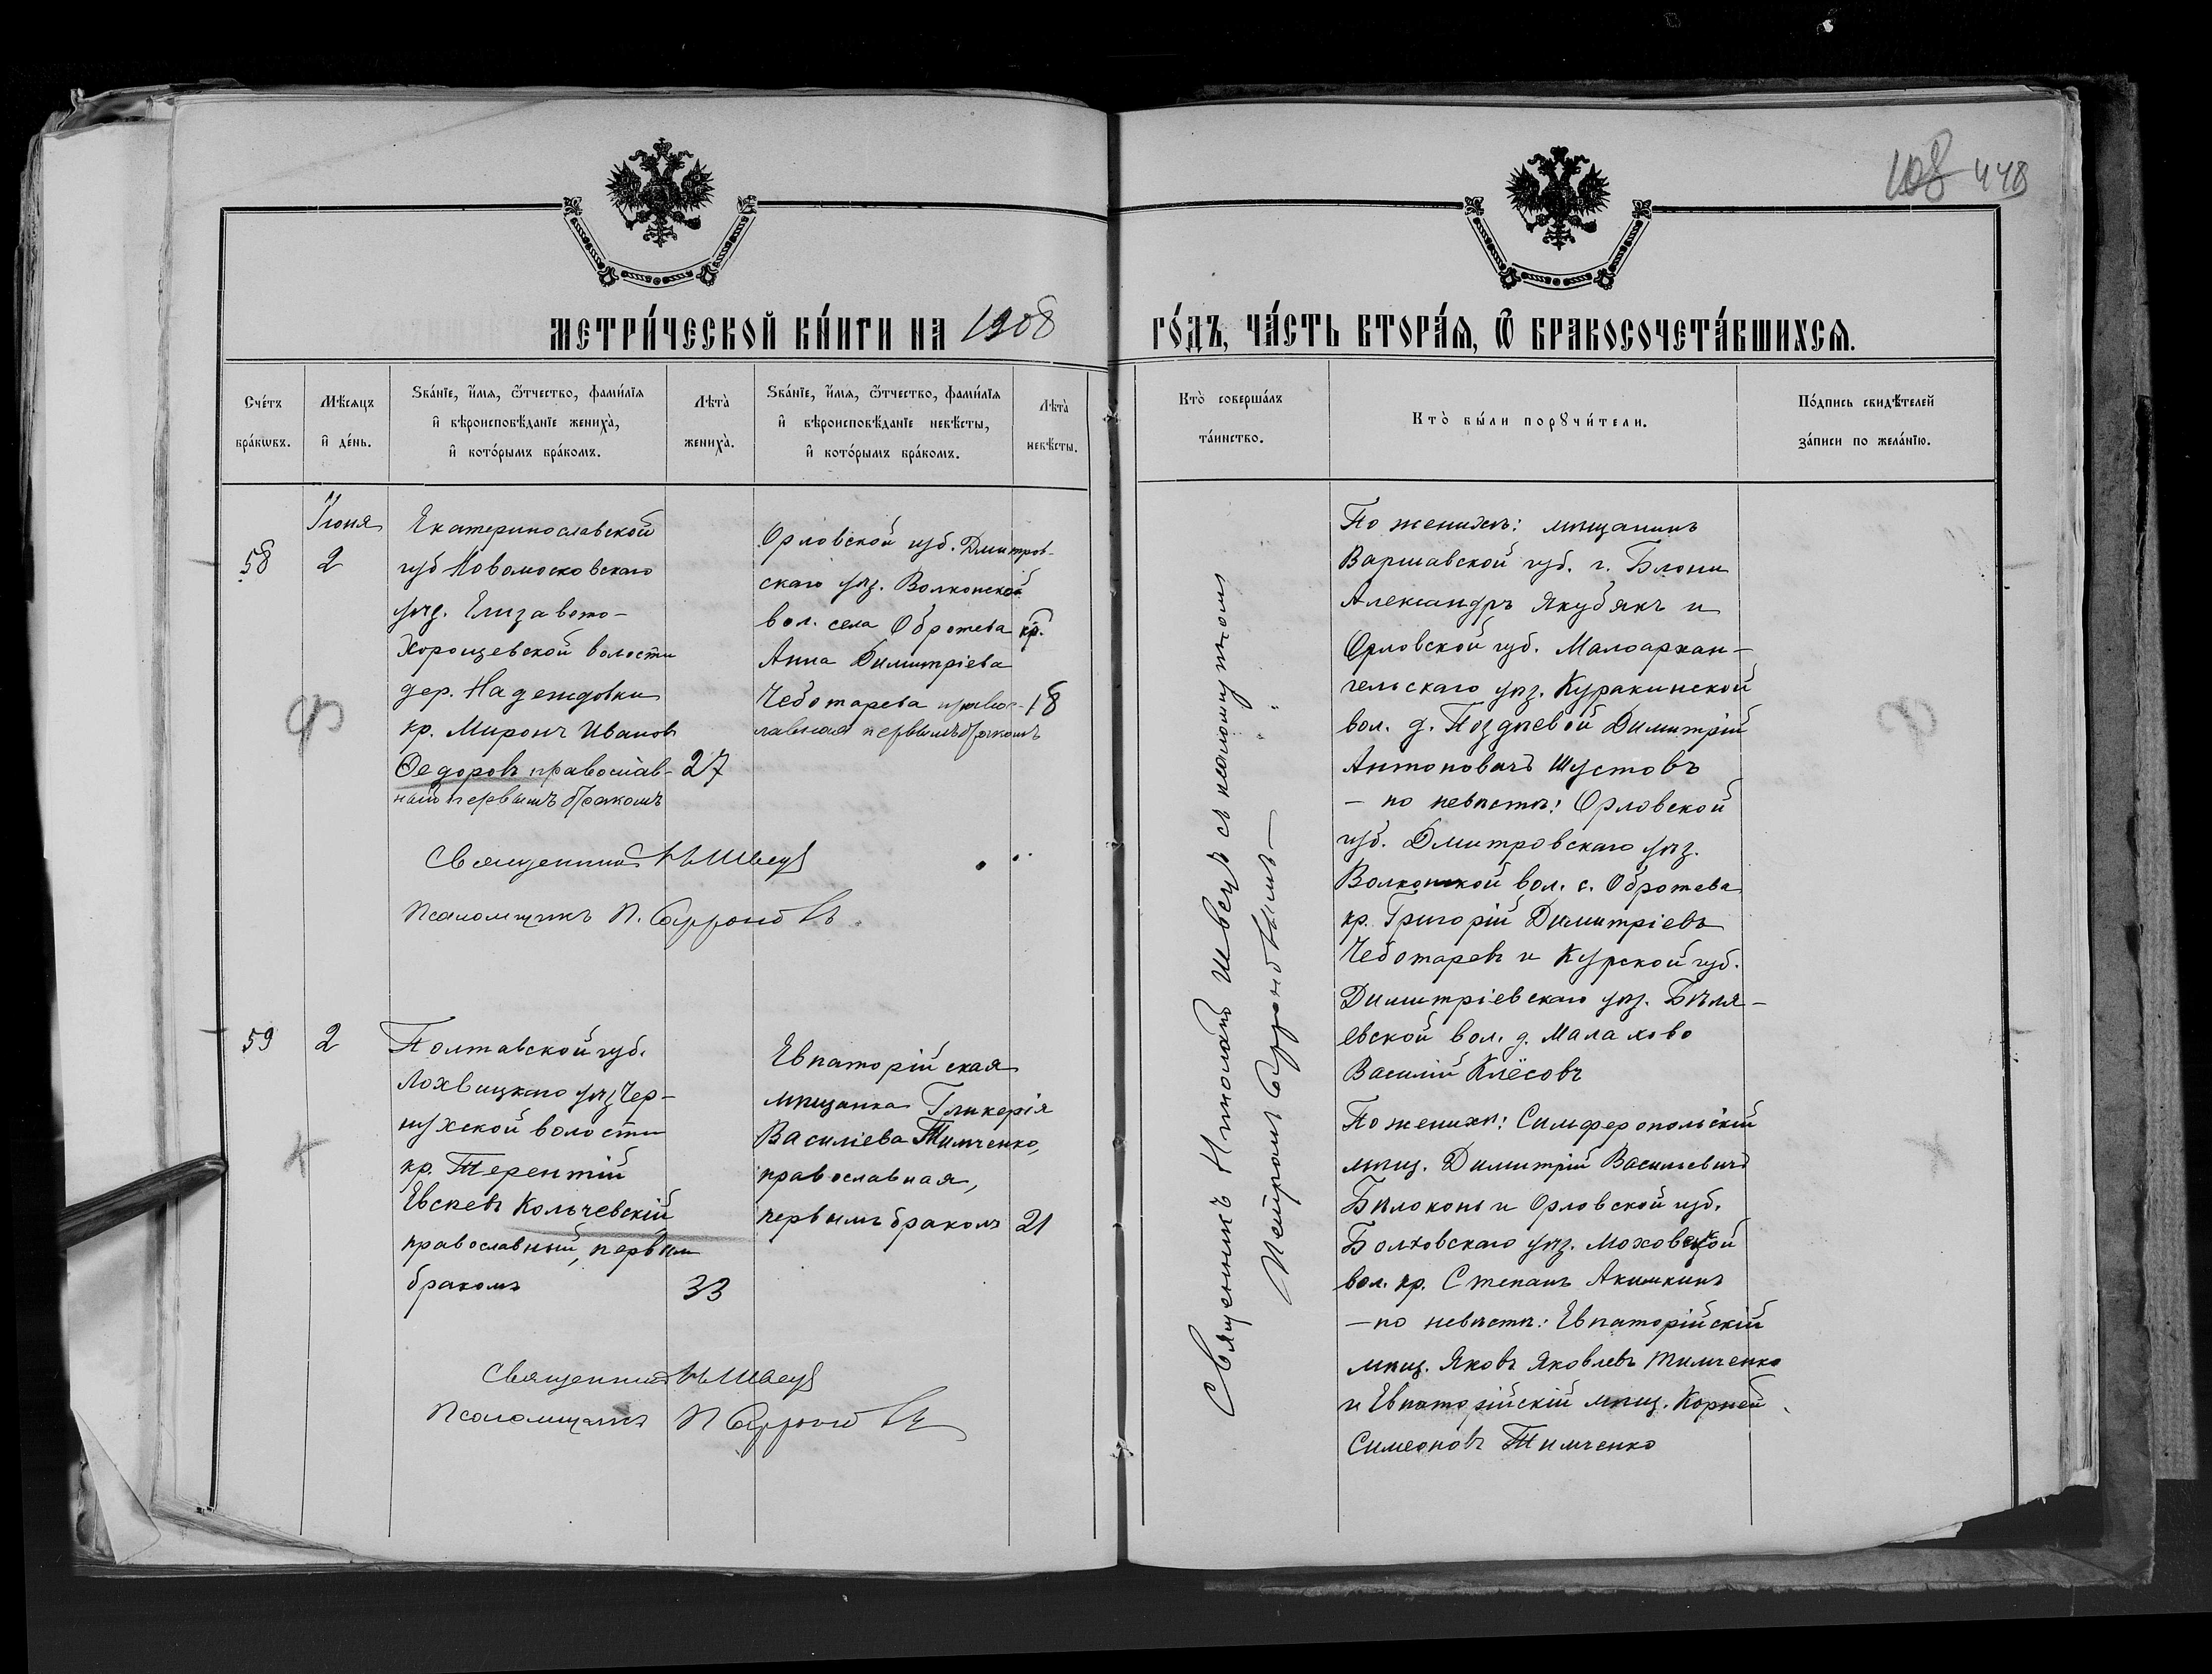 108 448
МЕТРИ́ЧЕСКОЙ КНИ́ГИ НА 1908
ГО́ДЪ, ЧА́СТЬ ВТОРА́Ѧ, Ѿ БРАКОСОЧЕТА́ВШИХСѦ.
Сче́тъ
бра́кѡвъ.
Мѣ́сѧцъ
и҆ де́нь.
Ѕва́нїе, и҆́мѧ, ѻ҆́тчество, фами́лїѧ
и҆ вѣроисповѣ́данїе жениха̀,
и҆ кото́рымъ бра́комъ.
Лѣта̀
жениха̀.
Ѕва́нїе, и҆́мѧ, ѻ҆́тчество, фами́лїѧ
и҆ вѣроисповѣ́данїе невѣ́сты,
и҆ кото́рымъ бра́комъ.
Лѣта̀
невѣ́сты.
Кто̀ соверша́лъ
та́инство.
Кто̀ бы́ли порꙋчи́тели.
По́дпись свидѣ́телей
за́писи по жела́нїю.
58
Іюня
2
Екатеринославской
губ Новомосковскаго
уѣз. Елизавето-
Хорошевской волости
дер. Надеждовки
кр. Миронъ Ивановъ
Ѳедоровъ православ-
ный первымъ бракомъ
27
Орловской губ. Дмитров-
скаго уѣз. Волконской
вол. села Обротева кр.
Анна Димитріева
Чеботарева правос-
лавная первымъ бракомъ
18
Священникъ Н Швецъ
Псаломщикъ П.
Священникъ Николай Швецъ съ псаломщикомъ
Петромъ
По женихѣ: мѣщанинъ
Варшавской губ. г. Блони
Александръ Якубякъ и
Орловской губ. Малоархан-
гельскаго уѣз. Куракинской
вол. д. Поздневой Димитрій
Антоновичъ Шустовъ
— по невѣстѣ: Орловской
губ. Дмитровскаго уѣз.
Волконской вол. с. Обротева
кр. Григорій Димитріевъ
Чеботаревъ и Курской губ.
Димитріевскаго уѣз. Бѣля-
евской вол. д. Малахово
Василій Клёсовъ
59
2
Полтавской губ.
Лохвицкаго уѣз Чер-
нухской волости
кр. Терентій
Евсѣевъ Кольчевскій
православный, первым
бракомъ
33
Евпаторійская
мѣщанка Гликерія
Василіева Тимченко,
православная,
первымъ бракомъ
21
Священникъ Н Швецъ
Псаломщикъ П
По женихѣ: Симферопольскій
мѣщ. Димитрій Васильевичъ
Бѣлоконь и Орловской губ.
Болховскаго уѣз. Моховской
вол. кр. Степанъ Акимкинъ
— по невѣстѣ: Евпаторійскій
мѣщ. Яковъ Яковлевъ Тимченко
и Евпаторійскій мѣщ. Корней
Симеоновъ Тимченко